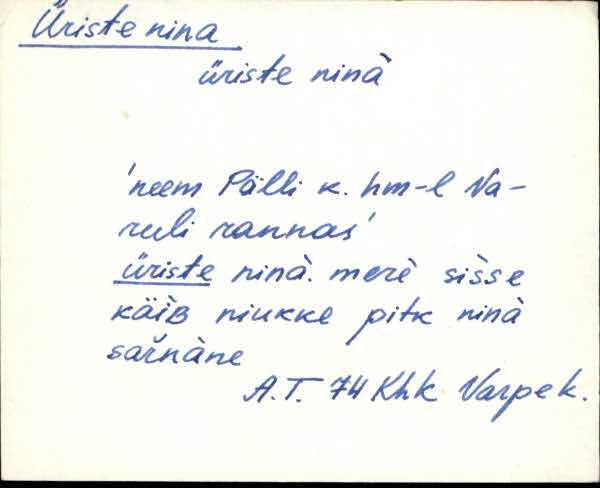 Üriste nina
üriste ninà
'neem Pälli k. hm-l Va-
ruli rannas'
üriste ninà. merè sišse
käìʙ niukke pitk ninà
sař̀nàne
A.T. 74 Khk Varpe k.